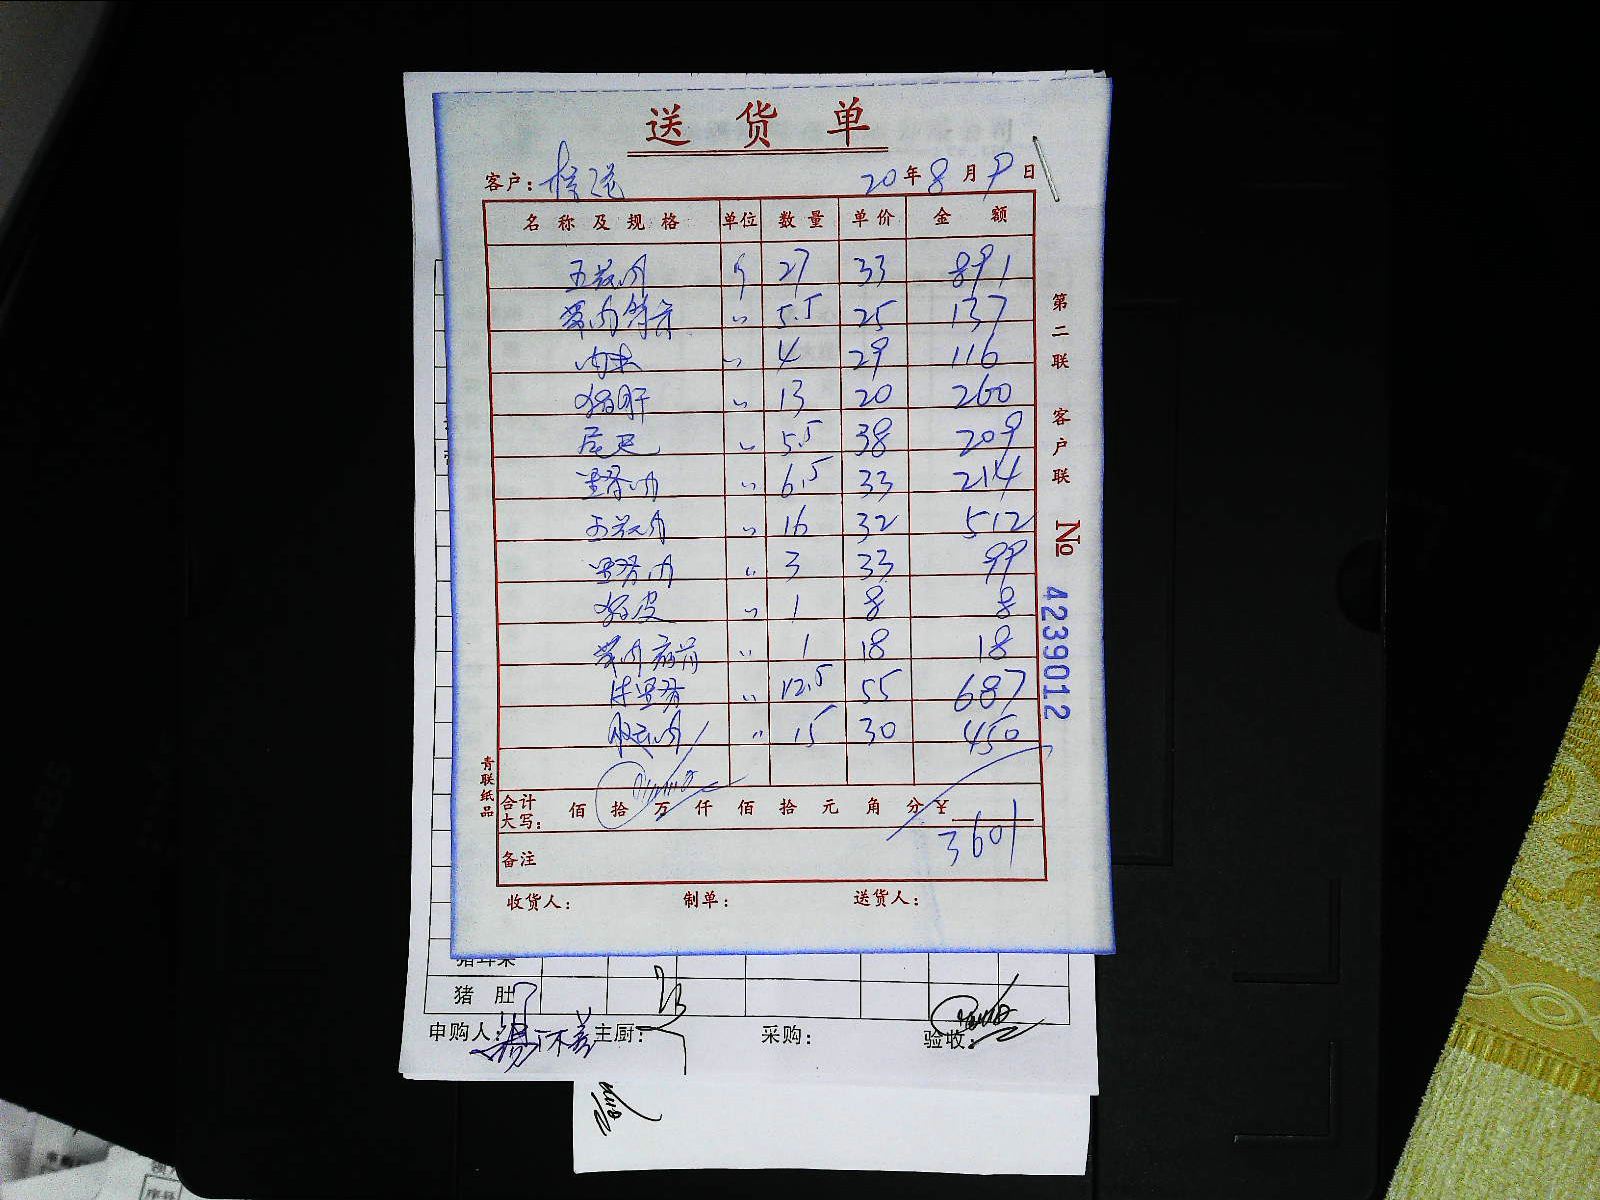 送货单
客户：
20年8月9日
名称及规格 单位 数量 单价 金额
五花肉 斤 27 33 891
带肉 〃 5.5 25 137
肉末 〃 4 29 116
猪肝 〃 13 20 260
〃 5.5 38 209
里脊肉 〃 6.5 33 214
五花肉 〃 16 32 512
里脊肉 〃 3 33 99
猪皮 〃 1 8 8
带肉 〃 1 18 18
里脊 〃 12.5 55 687
肉 〃 15 30 450
合计
大写： 佰 拾 万 仟 佰 拾 元 角 分 ¥
3601
备注
收货人： 制单： 送货人：
第二联 客户联
№ 4239012
青联纸品
猪肚
申购人： 主厨： 采购： 验收：